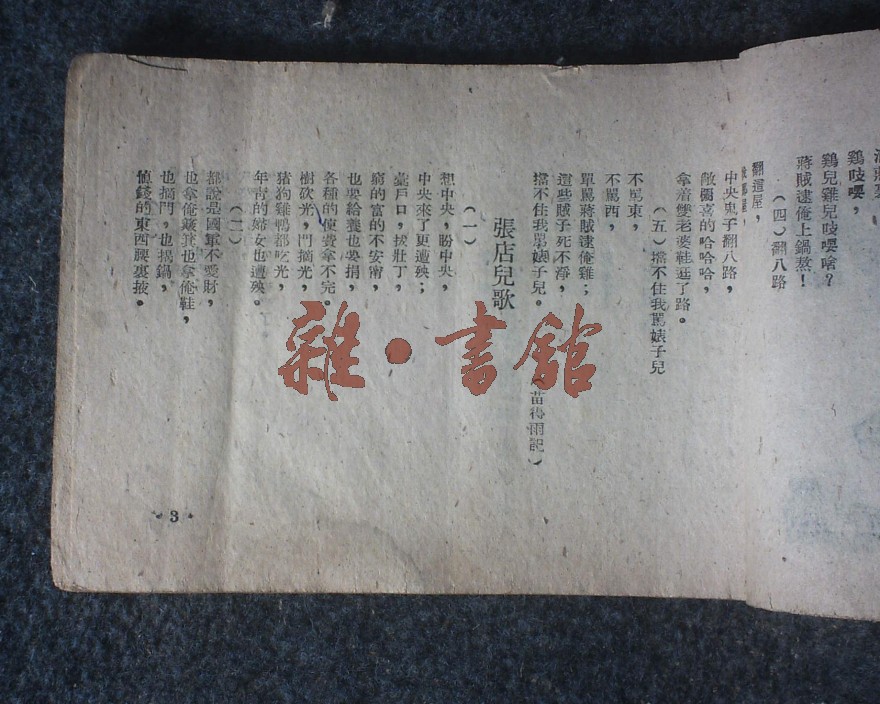 鷄吱嘤,
鷄兒雞兒吱嘤啥?
蔣賊逮俺上鍋熬!
(四)翻八路
翻這屋,
中央鬼子翻八路,
敵彌喜的哈哈哈,
拿着雙老婆鞋
(五)擋不住我罵婊子兒
不罵東,
不罵西,
單罵蔣賊逮俺雞;
這些賊子死不淨,
擋不住我罵婊子兒。
(苗得雨記)
張店兒歌
(一)
想中央,盼中央,
中央來了更遭殃;
戶口,拔壯丁,
窮的富的不安甯,
也要給養也要捐,
各種的使費拿不完。
樹砍光,門摘光,
猪狗雞鴨都吃光,
年青的婦女也遭殃。
(二)
都說是國軍不愛財,
也拿俺簸箕也拿俺鞋,
也摘門,也揭鍋,
值錢的東西腰裏掖。
3
雜·書館